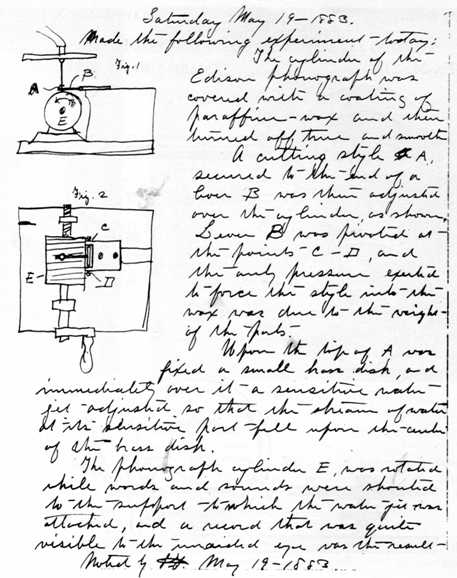 Saturday May 19-1883.
Made the following experiment to-day:
Fig. 1
A
B
E
The cylinder of the
Edison phonograph was
covered with a coating of
paraffine-wax and then
turned off true and smooth
A cutting style A,
secured to the end of a
lever B was then adjusted
over the cylinder, as shown.
Lever B was pivoted at
the points C-D, and
the only pressure exerted
to force the style into the
wax was due to the weight
of the parts-
Fig. 2
C
E
D
Upon the top of A was
fixed a small brass disk, and
immediately over it a sensitive water
jet adjusted so that the stream of water
at its sensitive part fell upon the center
of the brass disk.
The phonograph cylinder E, was rotated
while words and sounds were shouted
to the support to which the water jet was
attached, and a record that was quite
visible to the unaided eye was the result-
Noted by May 19-1883...